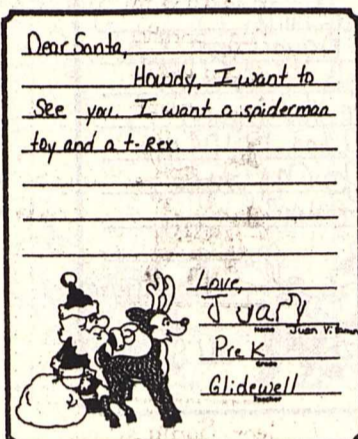 Dear Santa,
Howdy, I want to
see you. I want a spiderman
toy and a t-Rex.
Love,
Juan
Name Juan V.
Pre K
Grade
Glidewell
Teacher